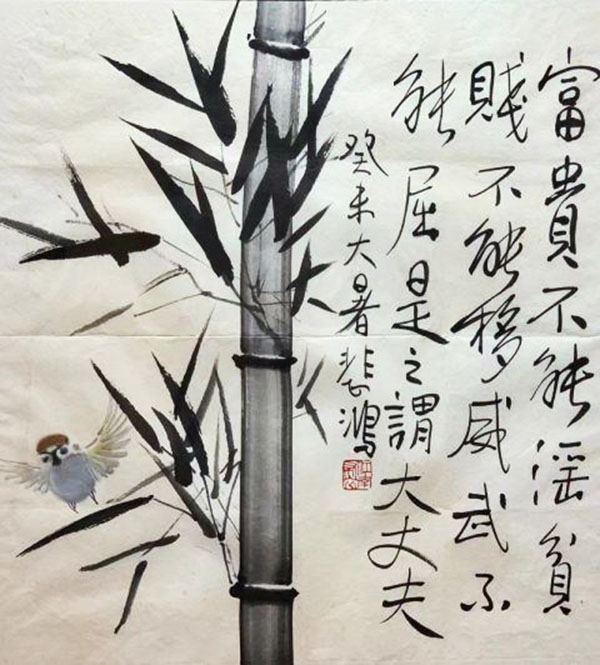 富貴不能淫貧
賤不能移威武不
能屈是之謂大丈夫
癸未大暑悲鴻